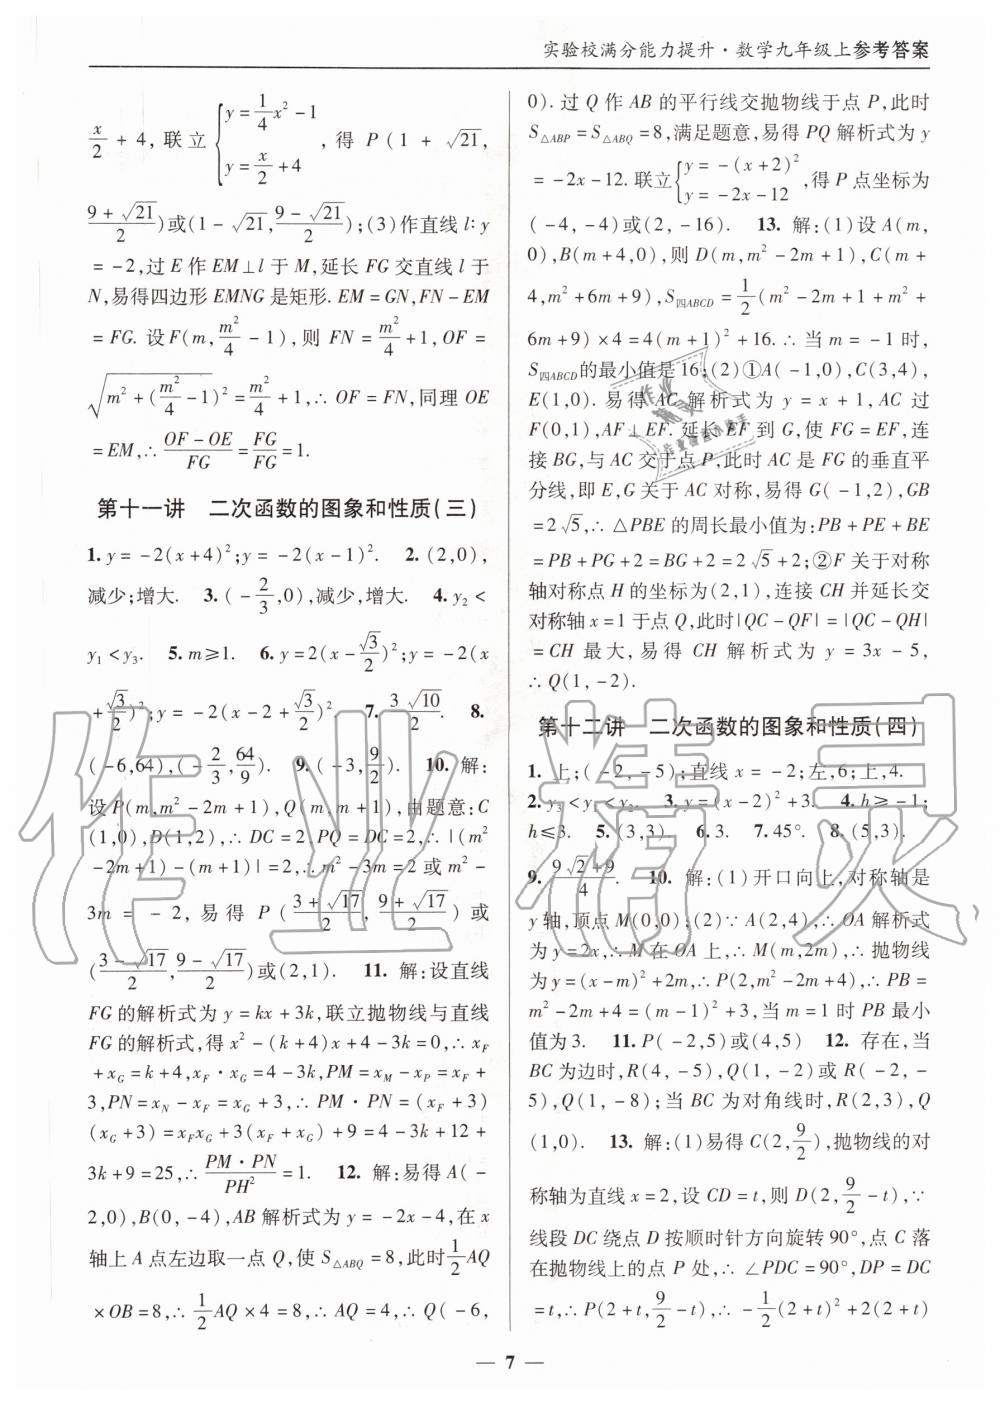 实验校满分能力提升·数学九年级上参考答案
x/2 + 4, 联立 { y = 1/4 x² − 1, y = x/2 + 4 , 得 P(1 + √21,
(9 + √21)/2) 或 (1 − √21, (9 − √21)/2);(3)作直线 l: y
= −2,过 E 作 EM⊥l 于 M,延长 FG 交直线 l 于
N,易得四边形 EMNG 是矩形. EM = GN, FN − EM
= FG. 设 F(m, m²/4 − 1), 则 FN = m²/4 + 1, OF =
√(m² + (m²/4 − 1)²) = m²/4 + 1, ∴ OF = FN, 同理 OE
= EM, ∴ (OF − OE)/FG = FG/FG = 1.
第十一讲 二次函数的图象和性质(三)
1. y = −2(x+4)²; y = −2(x−1)². 2. (2,0),
减少;增大. 3. (−2/3,0),减少,增大. 4. y₂ <
y₁ < y₃. 5. m≥1. 6. y = 2(x − √3/2)²; y = −2(x
+ √3/2)²; y = −2(x − 2 + √3/2)². 7. 3√10/2. 8.
(−6,64),(−2/3, 64/9). 9. (−3, 9/2). 10. 解:
设 P(m, m² − 2m + 1), Q(m, m + 1), 由题意: C
(1,0), D(1,2), ∴ DC = 2, PQ = DC = 2, ∴ |(m²
−2m + 1) − (m + 1)| = 2, ∴ m² − 3m = 2 或 m² −
3m = −2, 易得 P((3 + √17)/2, (9 + √17)/2) 或
((3 − √17)/2, (9 − √17)/2) 或 (2,1). 11. 解:设直线
FG 的解析式为 y = kx + 3k,联立抛物线与直线
FG 的解析式,得 x² − (k+4)x + 4 − 3k = 0, ∴ x_F
+ x_G = k + 4, x_F · x_G = 4 − 3k, PM = x_M − x_P = x_F +
3, PN = x_N − x_F = x_G + 3, ∴ PM · PN = (x_F + 3)
(x_G + 3) = x_F x_G + 3(x_F + x_G) + 9 = 4 − 3k + 12 +
3k + 9 = 25, ∴ (PM · PN)/PH² = 1. 12. 解:易得 A(−
2,0), B(0, −4), AB 解析式为 y = −2x − 4,在 x
轴上 A 点左边取一点 Q,使 S△ABQ = 8,此时 1/2 AQ
× OB = 8, ∴ 1/2 AQ × 4 = 8, ∴ AQ = 4, ∴ Q(−6,
0). 过 Q 作 AB 的平行线交抛物线于点 P,此时
S△ABP = S△ABQ = 8,满足题意,易得 PQ 解析式为 y
= −2x − 12. 联立 { y = −(x+2)², y = −2x − 12 ,得 P 点坐标为
(−4, −4) 或 (2, −16). 13. 解:(1)设 A(m,
0), B(m+4,0), 则 D(m, m² − 2m + 1), C(m +
4, m² + 6m + 9), S四ABCD = 1/2(m² − 2m + 1 + m² +
6m + 9) × 4 = 4(m+1)² + 16. ∴ 当 m = −1 时,
S四ABCD的最小值是 16;(2)①A(−1,0),C(3,4),
E(1,0). 易得 AC 解析式为 y = x + 1, AC 过
F(0,1), AF⊥EF. 延长 EF 到 G,使 FG = EF,连
接 BG,与 AC 交于点 P,此时 AC 是 FG 的垂直平
分线,即 E,G 关于 AC 对称,易得 G(−1,2),GB
= 2√5, ∴ △PBE 的周长最小值为: PB + PE + BE
= PB + PG + 2 = BG + 2 = 2√5 + 2;②F 关于对称
轴对称点 H 的坐标为(2,1),连接 CH 并延长交
对称轴 x = 1 于点 Q,此时 |QC − QF| = |QC − QH|
= CH 最大,易得 CH 解析式为 y = 3x − 5,
∴ Q(1, −2).
第十二讲 二次函数的图象和性质(四)
1. 上;(−2, −5);直线 x = −2;左,6;上,4.
2. y₃ < y₁ < y₂. 3. y = (x−2)² + 3. 4. h≥−1;
h≤3. 5. (3,3). 6. 3. 7. 45°. 8. (5,3).
9. (9√2 + 9)/4. 10. 解:(1)开口向上,对称轴是
y 轴,顶点 M(0,0);(2)∵ A(2,4),∴ OA 解析式
为 y = 2x,∴ M 在 OA 上,∴ M(m,2m) ∴ 抛物线
为 y = (x−m)² + 2m,∴ P(2,m² − 2m + 4),∴ PB =
m² − 2m + 4 = (m−1)² + 3,当 m = 1 时 PB 最小
值为 3. 11. P(−2,5) 或 (4,5) 12. 存在,当
BC 为边时,R(4, −5),Q(1, −2) 或 R(−2, −
5),Q(1, −8);当 BC 为对角线时,R(2,3),Q
(1,0). 13. 解:(1)易得 C(2, 9/2),抛物线的对
称轴为直线 x = 2,设 CD = t,则 D(2, 9/2 − t),∵
线段 DC 绕点 D 按顺时针方向旋转 90°,点 C 落
在抛物线上的点 P 处,∴ ∠PDC = 90°,DP = DC
= t,∴ P(2 + t, 9/2 − t),∴ −1/2(2+t)² + 2(2+t)
— 7 —
作业精灵